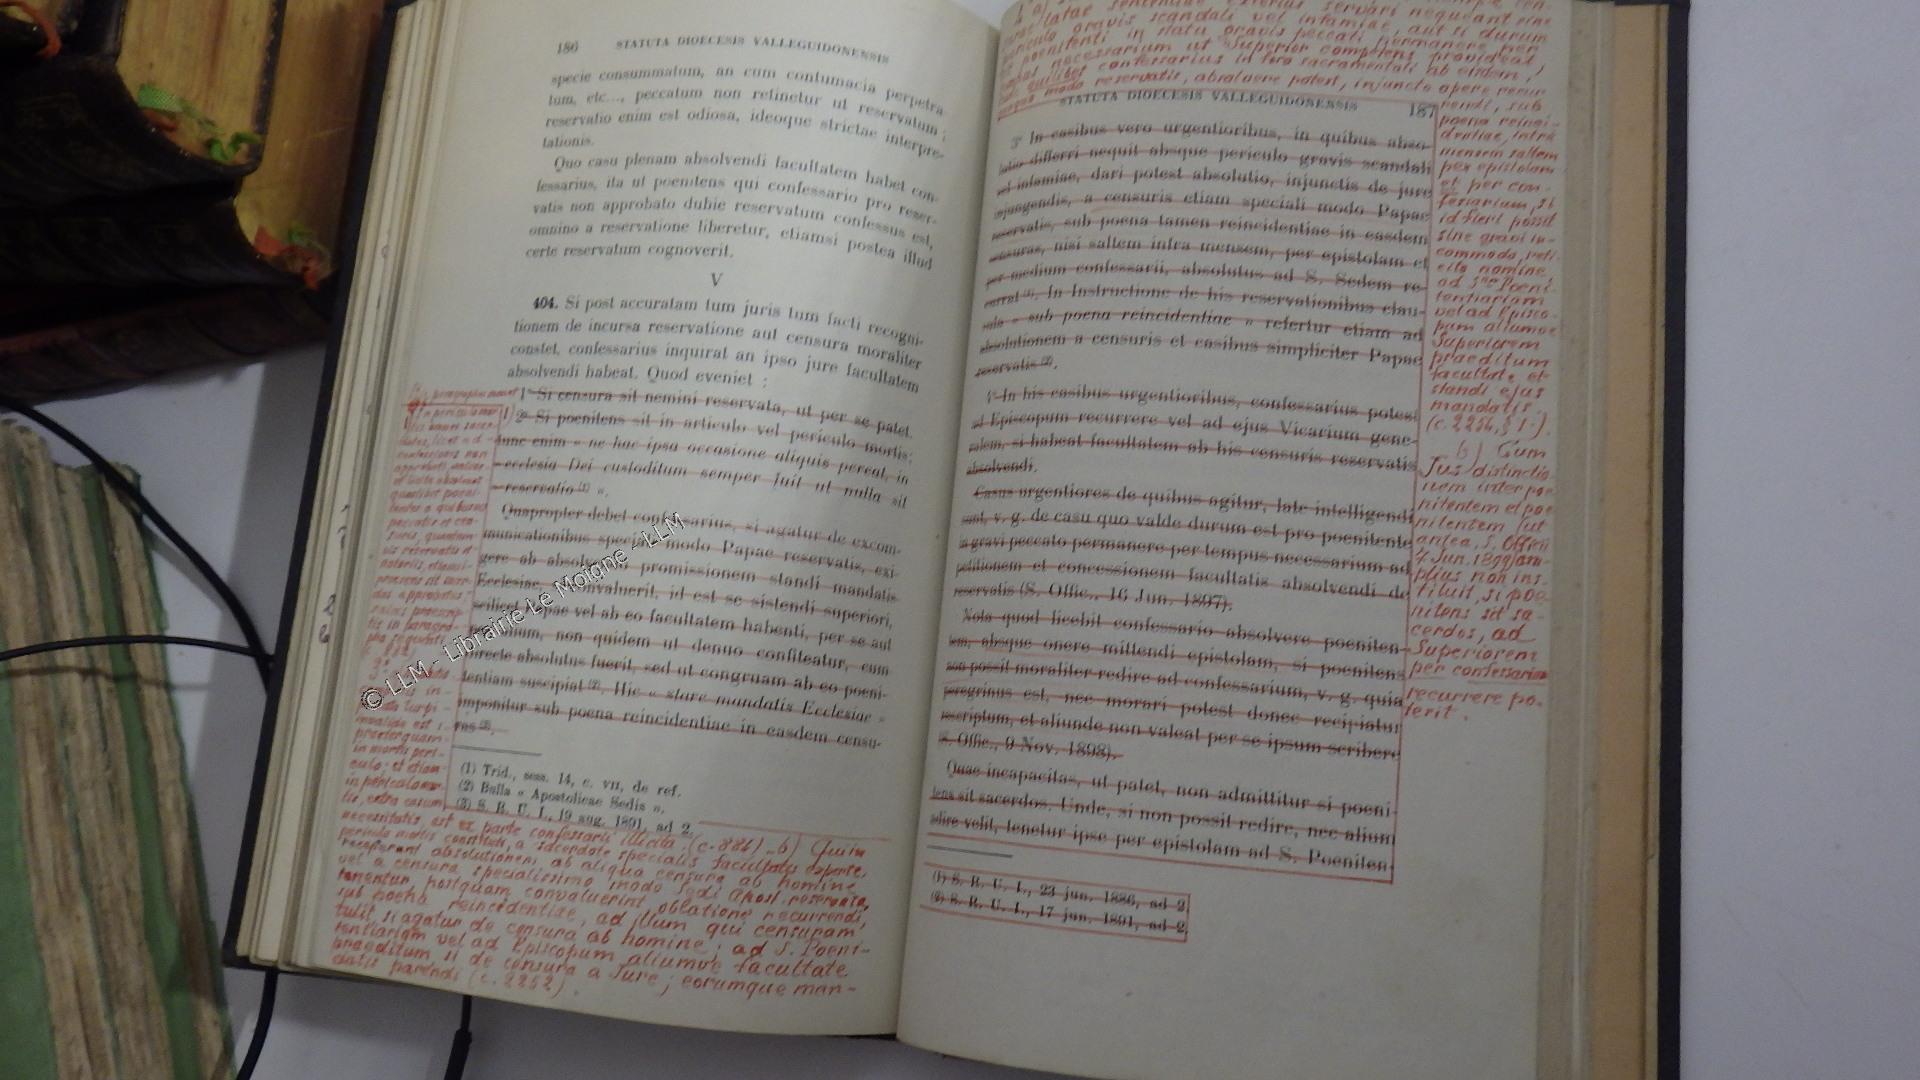 186 STATUTA DIOECESIS VALLEGUIDONENSIS
specie consummatum, an cum contumacia perpetra-
tum, etc..., peccatum non retinetur ut reservatum ;
reservatio enim est odiosa, ideoque strictae interpre-
tationis.
Quo casu plenam absolvendi facultatem habet con-
fessarius, ita ut poenitens qui confessario pro reser-
vatis non approbato dubie reservatum confessus est,
omnino a reservatione liberetur, etiamsi postea illud
certe reservatum cognoverit.
V
404. Si post accuratam tum juris tum facti recogni-
tionem de incursa reservatione aut censura moraliter
constet, confessarius inquirat an ipso jure facultatem
absolvendi habeat. Quod eveniet :
1° Si censura sit nemini reservata, ut per se patet.
2° Si poenitens sit in articulo vel periculo mortis;
tunc enim « ne hac ipsa occasione aliquis pereat, in
ecclesia Dei custoditum semper fuit ut nulla sit
reservatio (1) ».
Quapropter debet confessarius, si agatur de excom-
municationibus speciali modo Papae reservatis, exi-
gere ab absolvendo promissionem standi mandatis
Ecclesiae, si convaluerit, id est se sistendi superiori,
scilicet Papae vel ab eo facultatem habenti, per se aut
per alium, non quidem ut denuo confiteatur, cum
directe absolutus fuerit, sed ut congruam ab eo poeni-
tentiam suscipiat (2). Hic « stare mandatis Ecclesiae »
imponitur sub poena reincidentiae in easdem censu-
ras (3).
(1) Trid., sess. 14, c. VII, de ref.
(2) Bulla « Apostolicae Sedis ».
(3) S. R. U. I., 19 aug. 1891, ad 2.
necessitatis, est ex parte confessarii illicita (c. 884) _ b) Qui in
periculo mortis constituti, a sacerdote specialis facultatis experte,
receperunt absolutionem ab aliqua censura ab homine
vel a censura specialissimo modo Sedi Apost. reservata,
tenentur, postquam convaluerint, obligatione recurrendi,
sub poena reincidentiae, ad illum qui censuram
tulit, si agatur de censura ab homine ; ad S. Poeni-
tentiariam vel ad Episcopum aliumve facultate
praeditum si de censura a Jure ; eorumque man-
datis parendi (c. 2252).
© LLM - Librairie Le Moigne - LLM
periculo gravis scandali vel infamiae, aut si durum
sit poenitenti in statu gravis peccati permanere per
tempus necessarium ut Superior competens provideat,
tunc quilibet confessarius in foro sacramentali ab eisdem,
quoquo modo reservatis, absolvere potest, injuncto onere recur
STATUTA DIOECESIS VALLEGUIDONENSIS 187
3° In casibus vero urgentioribus, in quibus abso-
lutio differri nequit absque periculo gravis scandali
vel infamiae, dari potest absolutio, injunctis de jure
injungendis, a censuris etiam speciali modo Papae
reservatis, sub poena tamen reincidentiae in easdem
censuras, nisi saltem infra mensem, per epistolam et
per medium confessarii, absolutus ad S. Sedem re-
currat (1). In Instructione de his reservationibus clau-
sula « sub poena reincidentiae » refertur etiam ad
absolutionem a censuris et casibus simpliciter Papae
reservatis (2).
4° In his casibus urgentioribus, confessarius potest
ad Episcopum recurrere vel ad ejus Vicarium gene-
ralem, si habeat facultatem ab his censuris reservatis
absolvendi.
Casus urgentiores de quibus agitur, late intelligendi
sunt, v. g. de casu quo valde durum est pro poenitente
in gravi peccato permanere per tempus necessarium ad
petitionem et concessionem facultatis absolvendi de
reservatis (S. Offic., 16 Jun. 1897).
Nota quod licebit confessario absolvere poeniten-
tem, absque onere mittendi epistolam, si poenitens
non possit moraliter redire ad confessarium, v. g. quia
peregrinus est, nec morari potest donec recipiatur
rescriptum, et aliunde non valeat per se ipsum scribere
(S. Offic., 9 Nov. 1898).
Quae incapacitas, ut patet, non admittitur si poeni-
tens sit sacerdos. Unde, si non possit redire, nec alium
adire velit, tenetur ipse per epistolam ad S. Poeniten-
(1) S. R. U. I., 23 jun. 1886, ad 2.
(2) S. R. U. I., 17 jun. 1891, ad 2.
rendi, sub
poena reinci-
dentiae, intra
mensem saltem
per epistolam
et per con-
fessarium, si
id fieri possit
sine gravi in-
commodo, reti-
cito nomine,
ad S. Poeni
tentiariam
vel ad Episco-
pum aliumve
Superiorem
praeditum
facultate et
standi ejus
mandatis.
(c. 2254, § 1.).
b) Cum
Jus distinctio
nem inter poe
nitentem et poe
nitentem (ut
antea, S. Officii
7 Jun. 1899) am-
plius non ins-
tituit, si poe
nitens sit sa-
cerdos, ad
Superiorem
per confessarium
recurrere po-
terit.